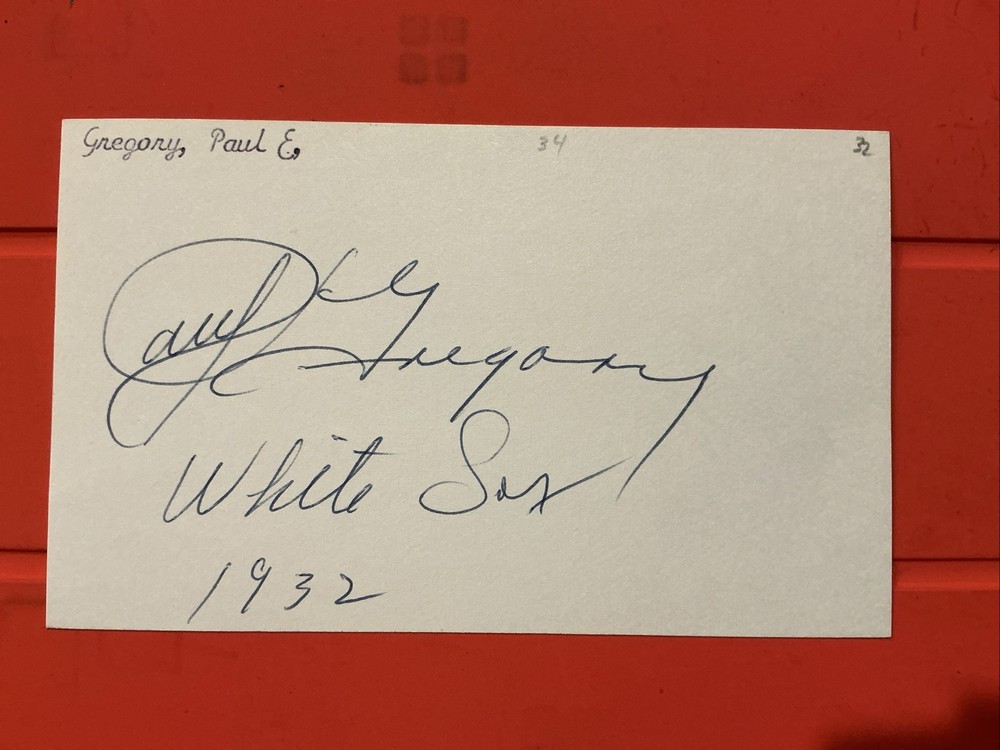 Gregory, Paul E, 34 32
Paul Gregory
White Sox
1932